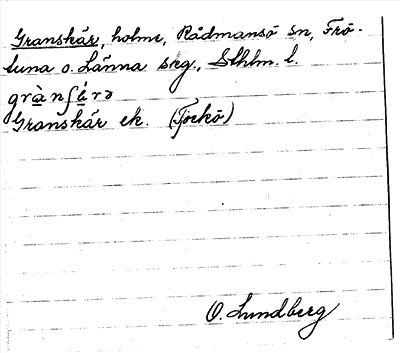 Granskär, holme, Rådmansö sn, Frö-
tuna o. Länna skg., Sthlm. l.
grànʃä̀rə
Granskär ek. (Tjockö)
O. Lundberg